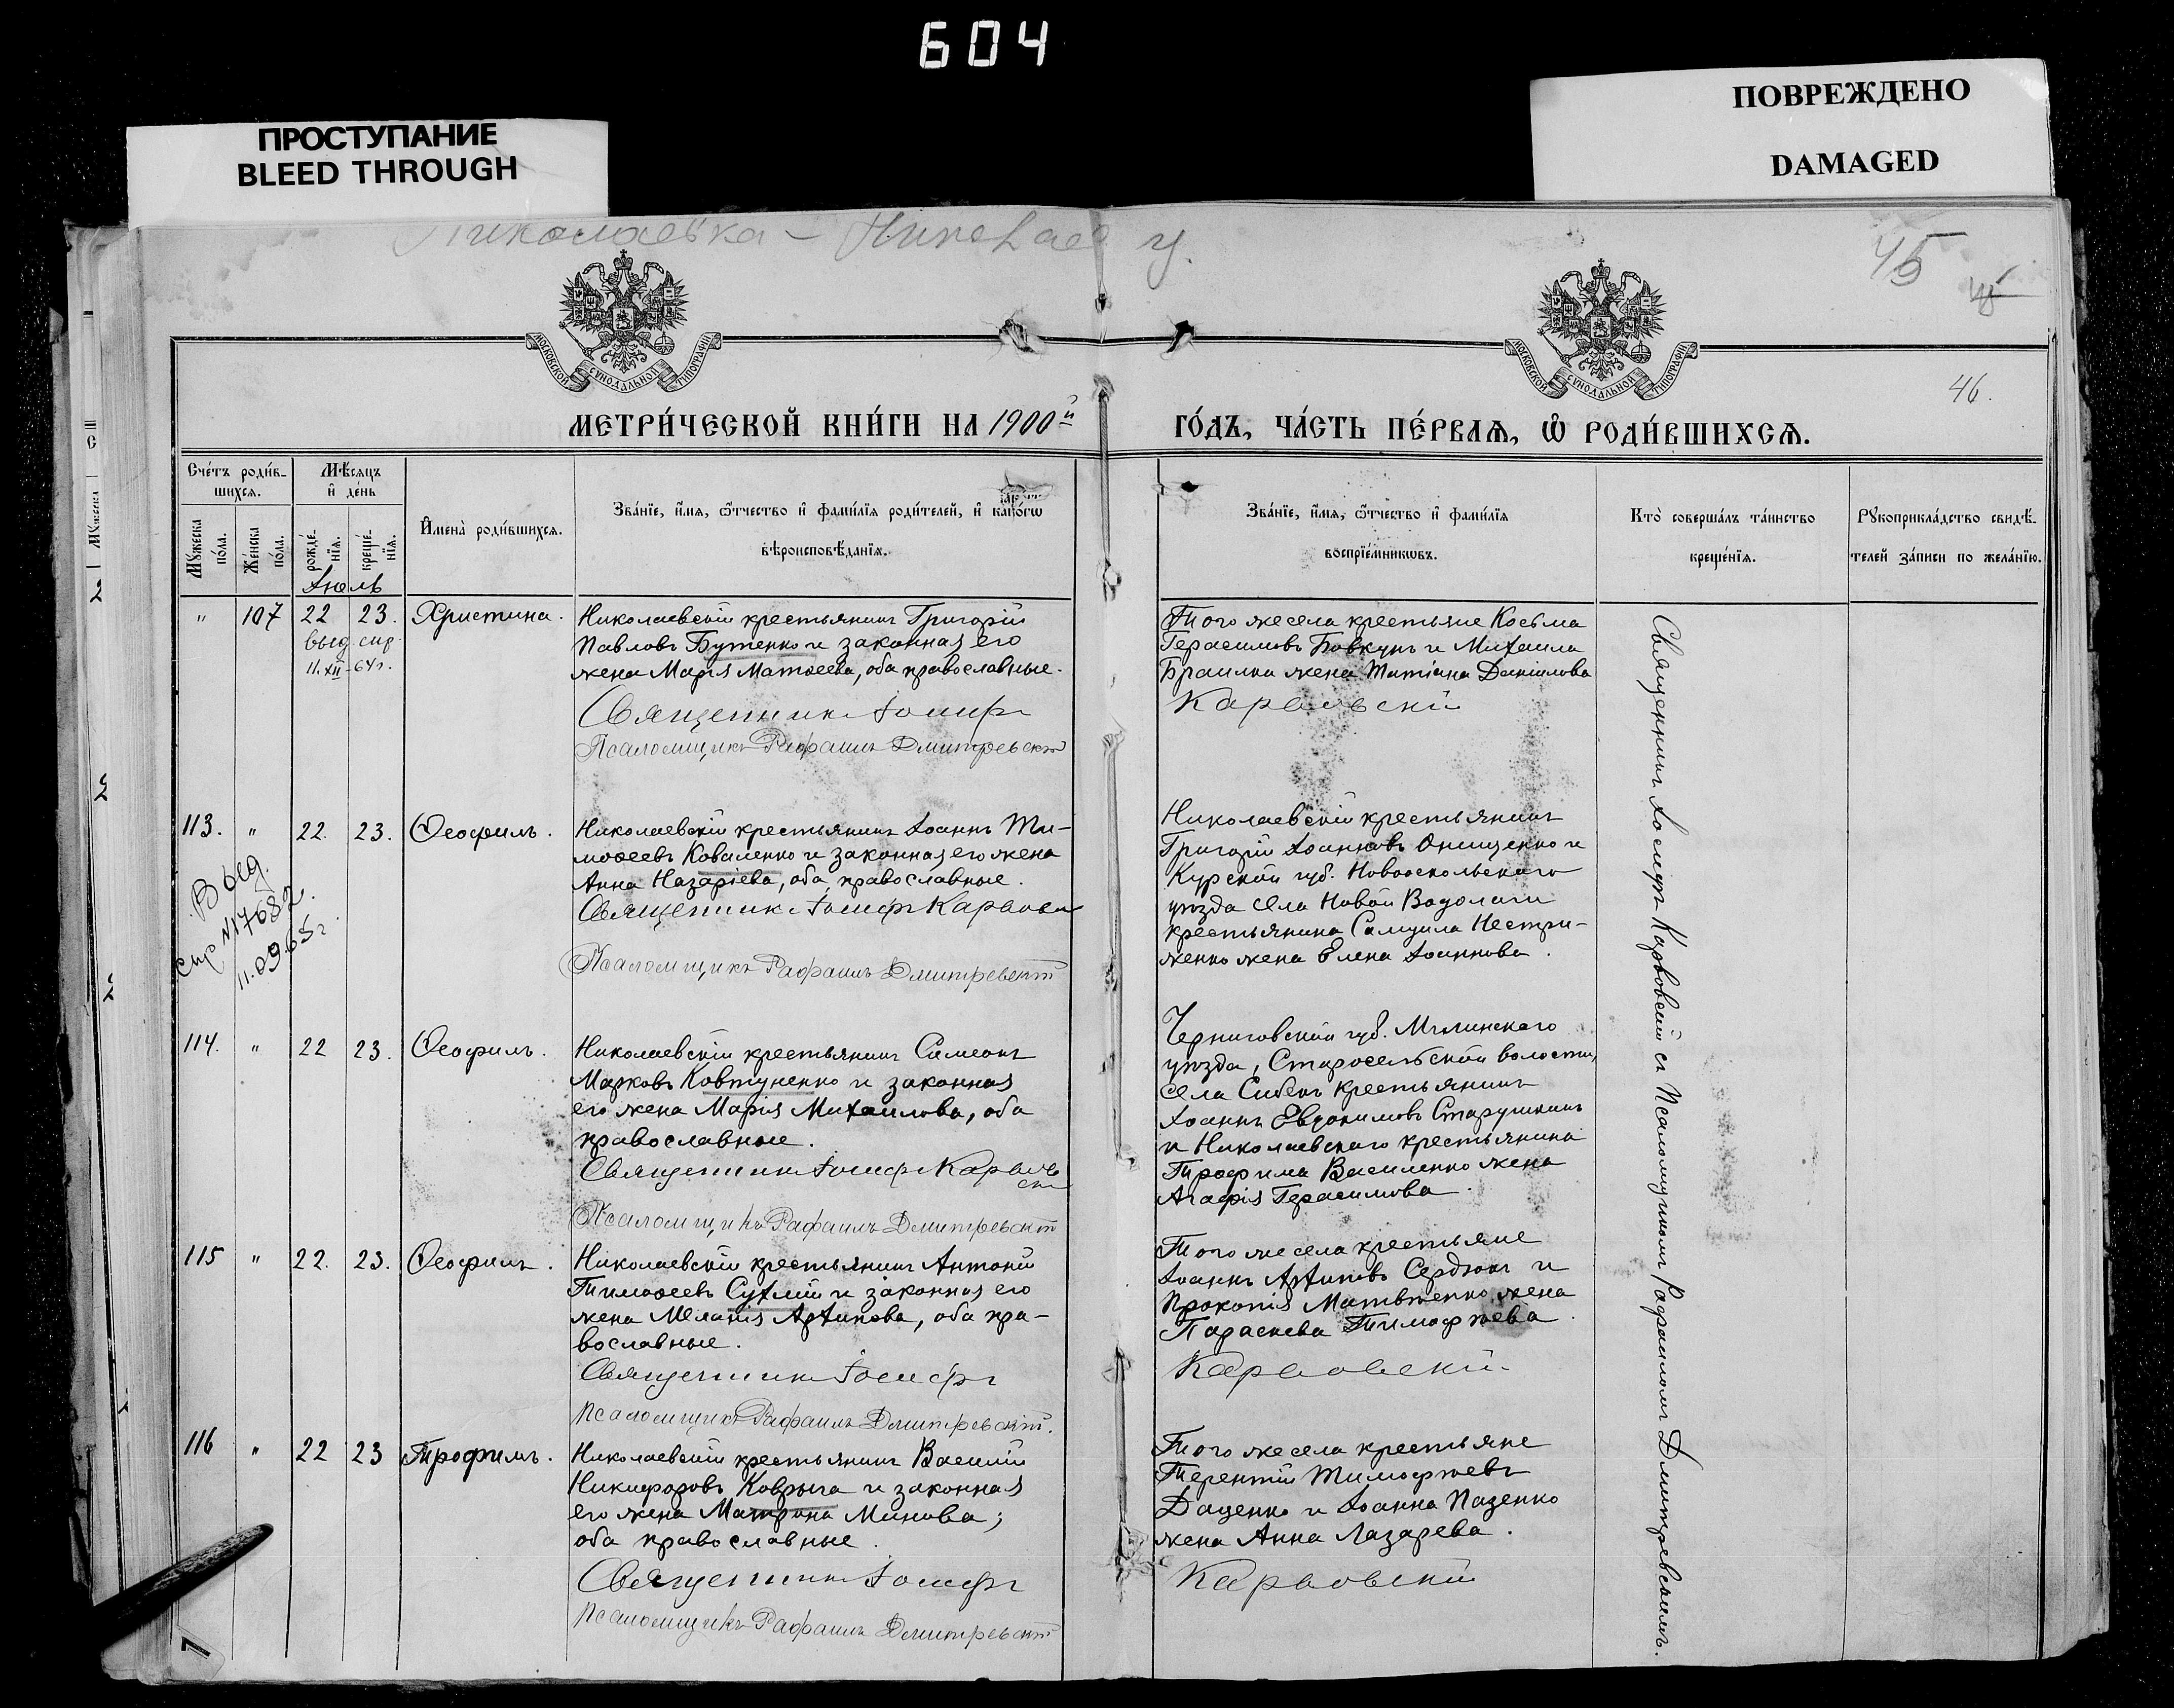 604
ПРОСТУПАНИЕ
BLEED THROUGH
ПОВРЕЖДЕНО
DAMAGED
Николаевка –
45
46.
МОСКОВСКОЙ СУНОДАЛЬНОЙ ТИПОГРАФІИ
МОСКОВСКОЙ СУНОДАЛЬНОЙ ТИПОГРАФІИ
МЕТРИ́ЧЕСКОЙ КНИ́ГИ НА 1900й
ГО́ДЪ, ЧА́СТЬ ПЕ́РВАѦ, Ѡ҆ РОДИ́ВШИХСѦ.
Сче́тъ роди́в-
шихсѧ.
Мѣ́сѧцъ
и҆ де́нь
Мꙋ́жеска по́ла.
Же́нска по́ла.
рожде́-нїѧ.
креще́-нїѧ.
Іюль
И҆мена̀ роди́вшихсѧ.
Зва́нїе, и҆́мѧ, ѿтчество и҆ фами́лїѧ роди́телей, и҆ како́гѡ
вѣроисповѣ́данїѧ.
Зва́нїе, и҆́мѧ, ѿтчество и҆ фами́лїѧ
воспрїе́мникѡвъ.
Кто̀ соверша́лъ та́инство
креще́нїѧ.
Рꙋкоприкла́дство свидѣ́-
телей за́писи по жела́нїю.
" 107 22 23. Христина.
выд спр.
11.XII-64г.
Николаевскій крестьянинъ Григорій
Павловъ Бутенко и законная его
жена Марія Матөеева, оба православные.
Священникъ Іосифъ
Псаломщикъ Рафаилъ Дмитревскій
Того же села крестьяне Косьма
Герасимовъ Бовкунъ и Михаила
Браилка жена Татіана Даніилова
Карповскій
113. " 22. 23. Ѳеофилъ.
Выд.
спр N17682.
11.09.65г.
Николаевскій крестьянинъ Іоаннъ Ти-
моѳеевъ Коваленко и законная его жена
Анна Назаріева, оба православные.
Священникъ Іосифъ Карповскій
Псаломщикъ Рафаилъ Дмитревскій
Николаевскій крестьянинъ
Григорій Іоанновъ Онищенко и
Курской губ. Новооскольскаго
уѣзда села Новой Водолаги
крестьянина Самуила Нестри-
женко жена Елена Іоаннова.
114. " 22 23. Ѳеофилъ.
Николаевскій крестьянинъ Симеонъ
Марковъ Ковтуненко и законная
его жена Марія Михаилова, оба
православные.
Священникъ Іосифъ Карповскій
Псаломщикъ Рафаилъ Дмитревскій
Черниговской губ. Мглинскаго
уѣзда, Старосельской волости,
села крестьянинъ
Іоаннъ Евдокимовъ Старушкинъ
и Николаевскаго крестьянина
Трофима Василенко жена
Агафія Герасимова.
115 " 22. 23. Ѳеофилъ.
Николаевскій крестьянинъ Антоній
Тимоѳеевъ Сухлій и законная его
жена Меланія Архипова, оба пра-
вославные.
Священникъ Іосифъ
Псаломщикъ Рафаилъ Дмитревскій.
Того же села крестьяне
Іоаннъ Архиповъ Сердюкъ и
Прокопія Матвѣенко жена
Параскева Тимофѣева.
Карповскій
116 " 22 23 Трофимъ.
Николаевскій крестьянинъ Василій
Никифоровъ Коврыга и законная
его жена Матрона Минова;
оба православные.
Священникъ Іосифъ
Псаломщикъ Рафаилъ Дмитревскій
Того же села крестьяне
Терентій Тимофѣевъ
Даценко и Іоанна Паценко
жена Анна Лазарева.
Карповскій
Священникъ Іосифъ Карповскій съ Псаломщикомъ Рафаиломъ Дмитревскимъ.